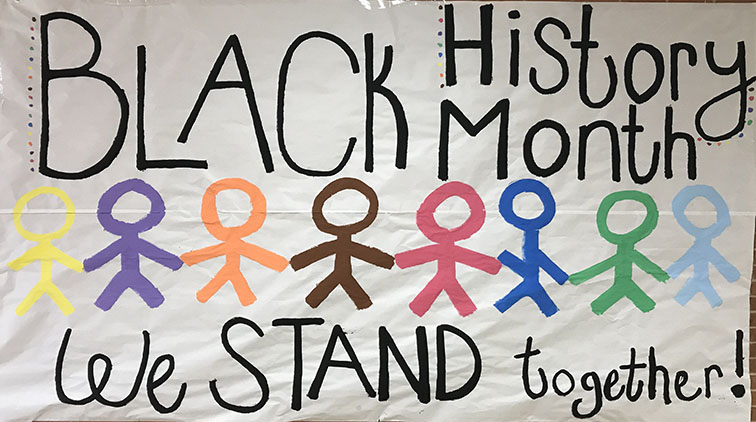 BLACK History
Month
We STAND together!